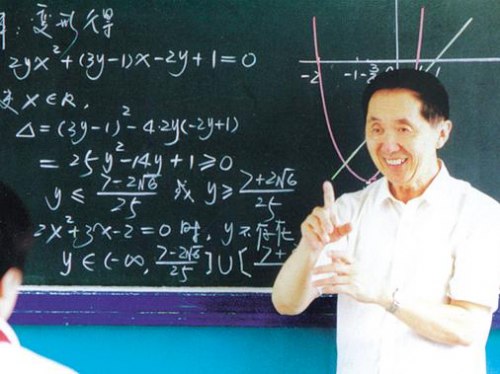 解:变形得
2yx²+(3y-1)x-2y+1=0
x∈R,
Δ=(3y-1)²-4·2y(-2y+1)
=25y²-14y+1≥0
y≤(7-2√6)/25 或 y≥(7+2√6)/25
2x²+3x-2=0时,y不存在
y∈(-∞,(7-2√6)/25]∪[7+
-2 -1